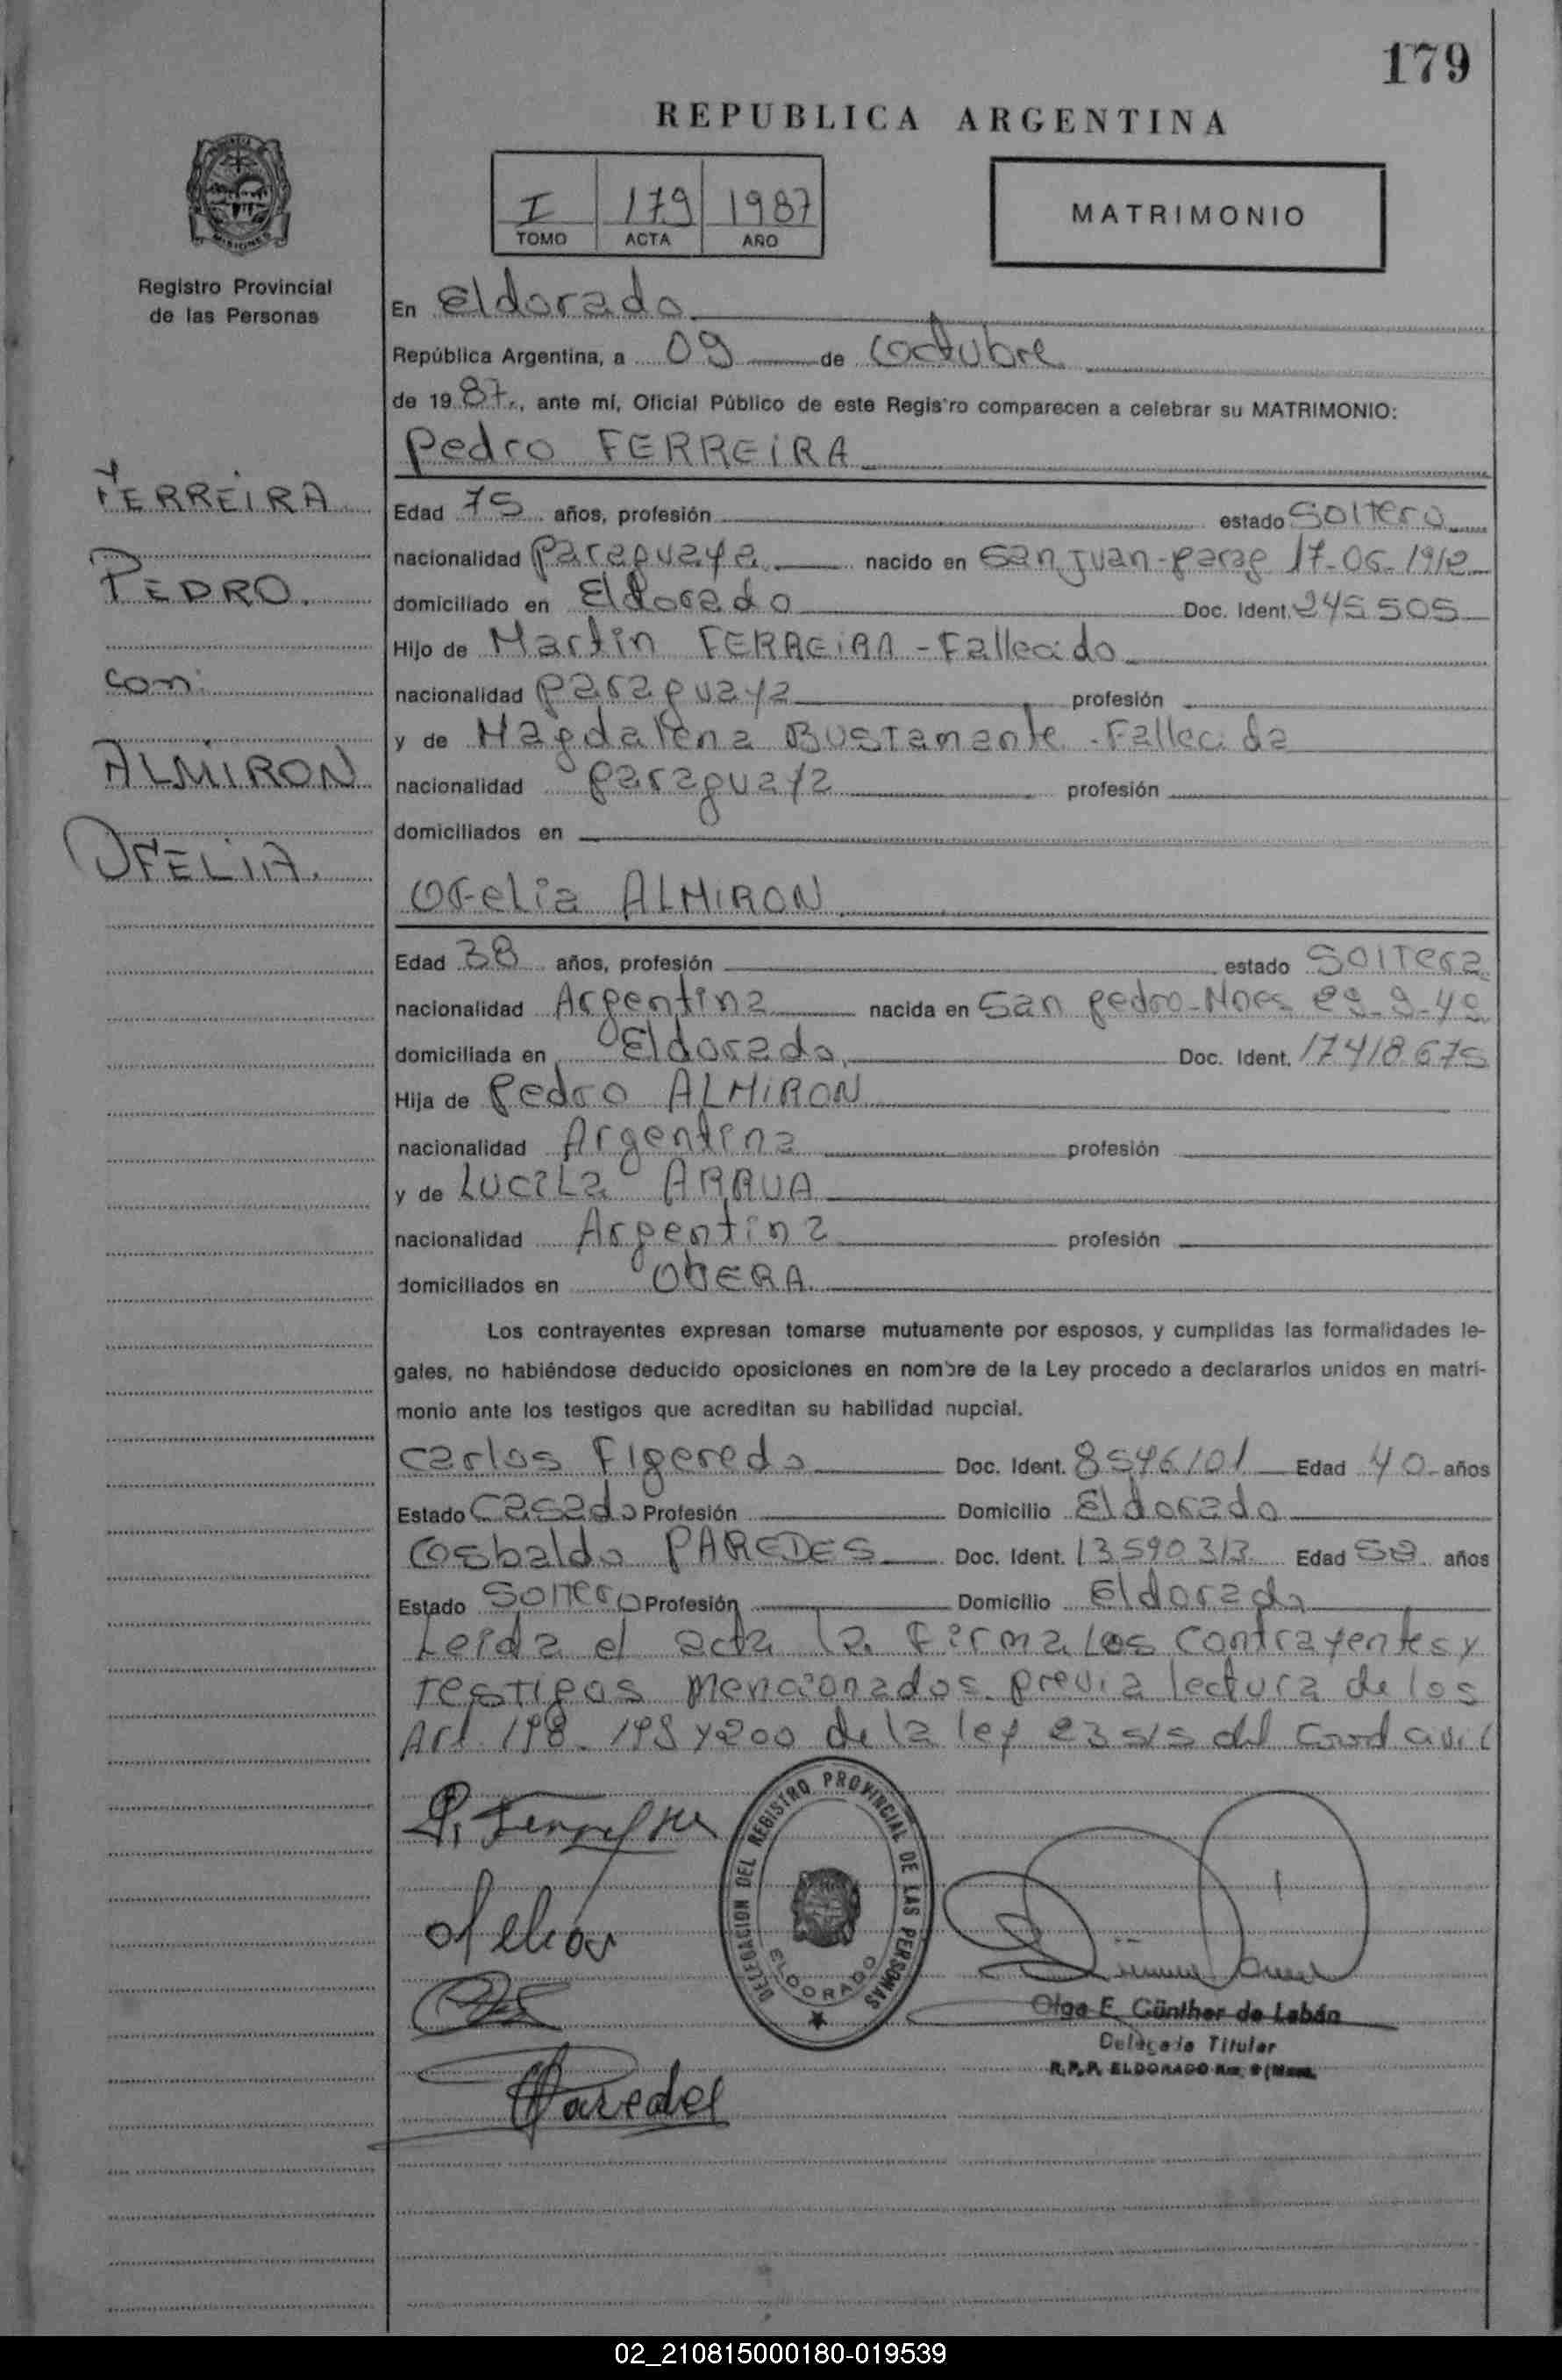 179
REPUBLICA ARGENTINA
I 179 1987
TOMO ACTA AÑO
MATRIMONIO
MISIONES
Registro Provincial
de las Personas
En Eldorado
República Argentina, a 09 de octubre
de 1987, ante mí, Oficial Público de este Registro comparecen a celebrar su MATRIMONIO:
Pedro FERREIRA
FERREIRA
PEDRO.
con:
ALMIRON
OFELIA.
Edad 75 años, profesión estado Soltero
nacionalidad paraguaya nacido en San Juan - parag 17-06-1912
domiciliado en Eldorado Doc. Ident. 245505
Hijo de Martin FERREIRA - Fallecido
nacionalidad paraguaya profesión
y de Magdalena BUSTamante - Fallecida
nacionalidad paraguaya profesión
domiciliados en
OFelia ALMIRON
Edad 38 años, profesión estado Soltera
nacionalidad Argentina nacida en San pedro - Mnes 29-9-49
domiciliada en Eldorado Doc. Ident. 17418675
Hija de Pedro ALMIRON
nacionalidad Argentina profesión
y de Lucila ARRUA
nacionalidad Argentina profesión
domiciliados en OBERA
Los contrayentes expresan tomarse mutuamente por esposos, y cumplidas las formalidades le-
gales, no habiéndose deducido oposiciones en nombre de la Ley procedo a declararlos unidos en matri-
monio ante los testigos que acreditan su habilidad nupcial.
Carlos Figeredo Doc. Ident. 8546101 Edad 40 años
Estado Casado Profesión Domicilio Eldorado
Cosbaldo PAREDES Doc. Ident. 13590313 Edad años
Estado Soltero Profesión Domicilio Eldorado
Leida el acta la Firma los contrayentes y
testigos mencionados previa lectura de los
Art. 198-199 y 200 de la ley 23515 del
DELEGACION DEL REGISTRO PROVINCIAL DE LAS PERSONAS
ELDORADO
Olga E. Günther de Labán
Delegada Titular
R.P.P. ELDORADO
Paredes
02_210815000180-019539